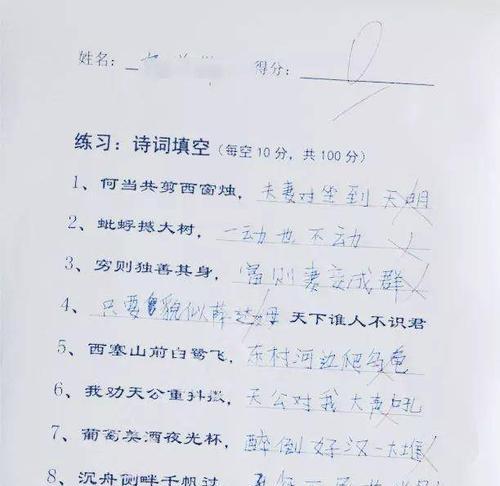 姓名： 得分： 0
练习：诗词填空（每空10分，共100分）
1、何当共剪西窗烛，夫妻对坐到天明
2、蚍蜉撼大树，一动也不动
3、穷则独善其身，富则妻妾成群
4、只要貌似薛达姆 天下谁人不识君
5、西塞山前白鹭飞，东村河边爬乌龟
6、我劝天公重抖擞，天公对我大声吼
7、葡萄美酒夜光杯，醉倒好汉一大堆
8、沉舟侧畔千帆过，